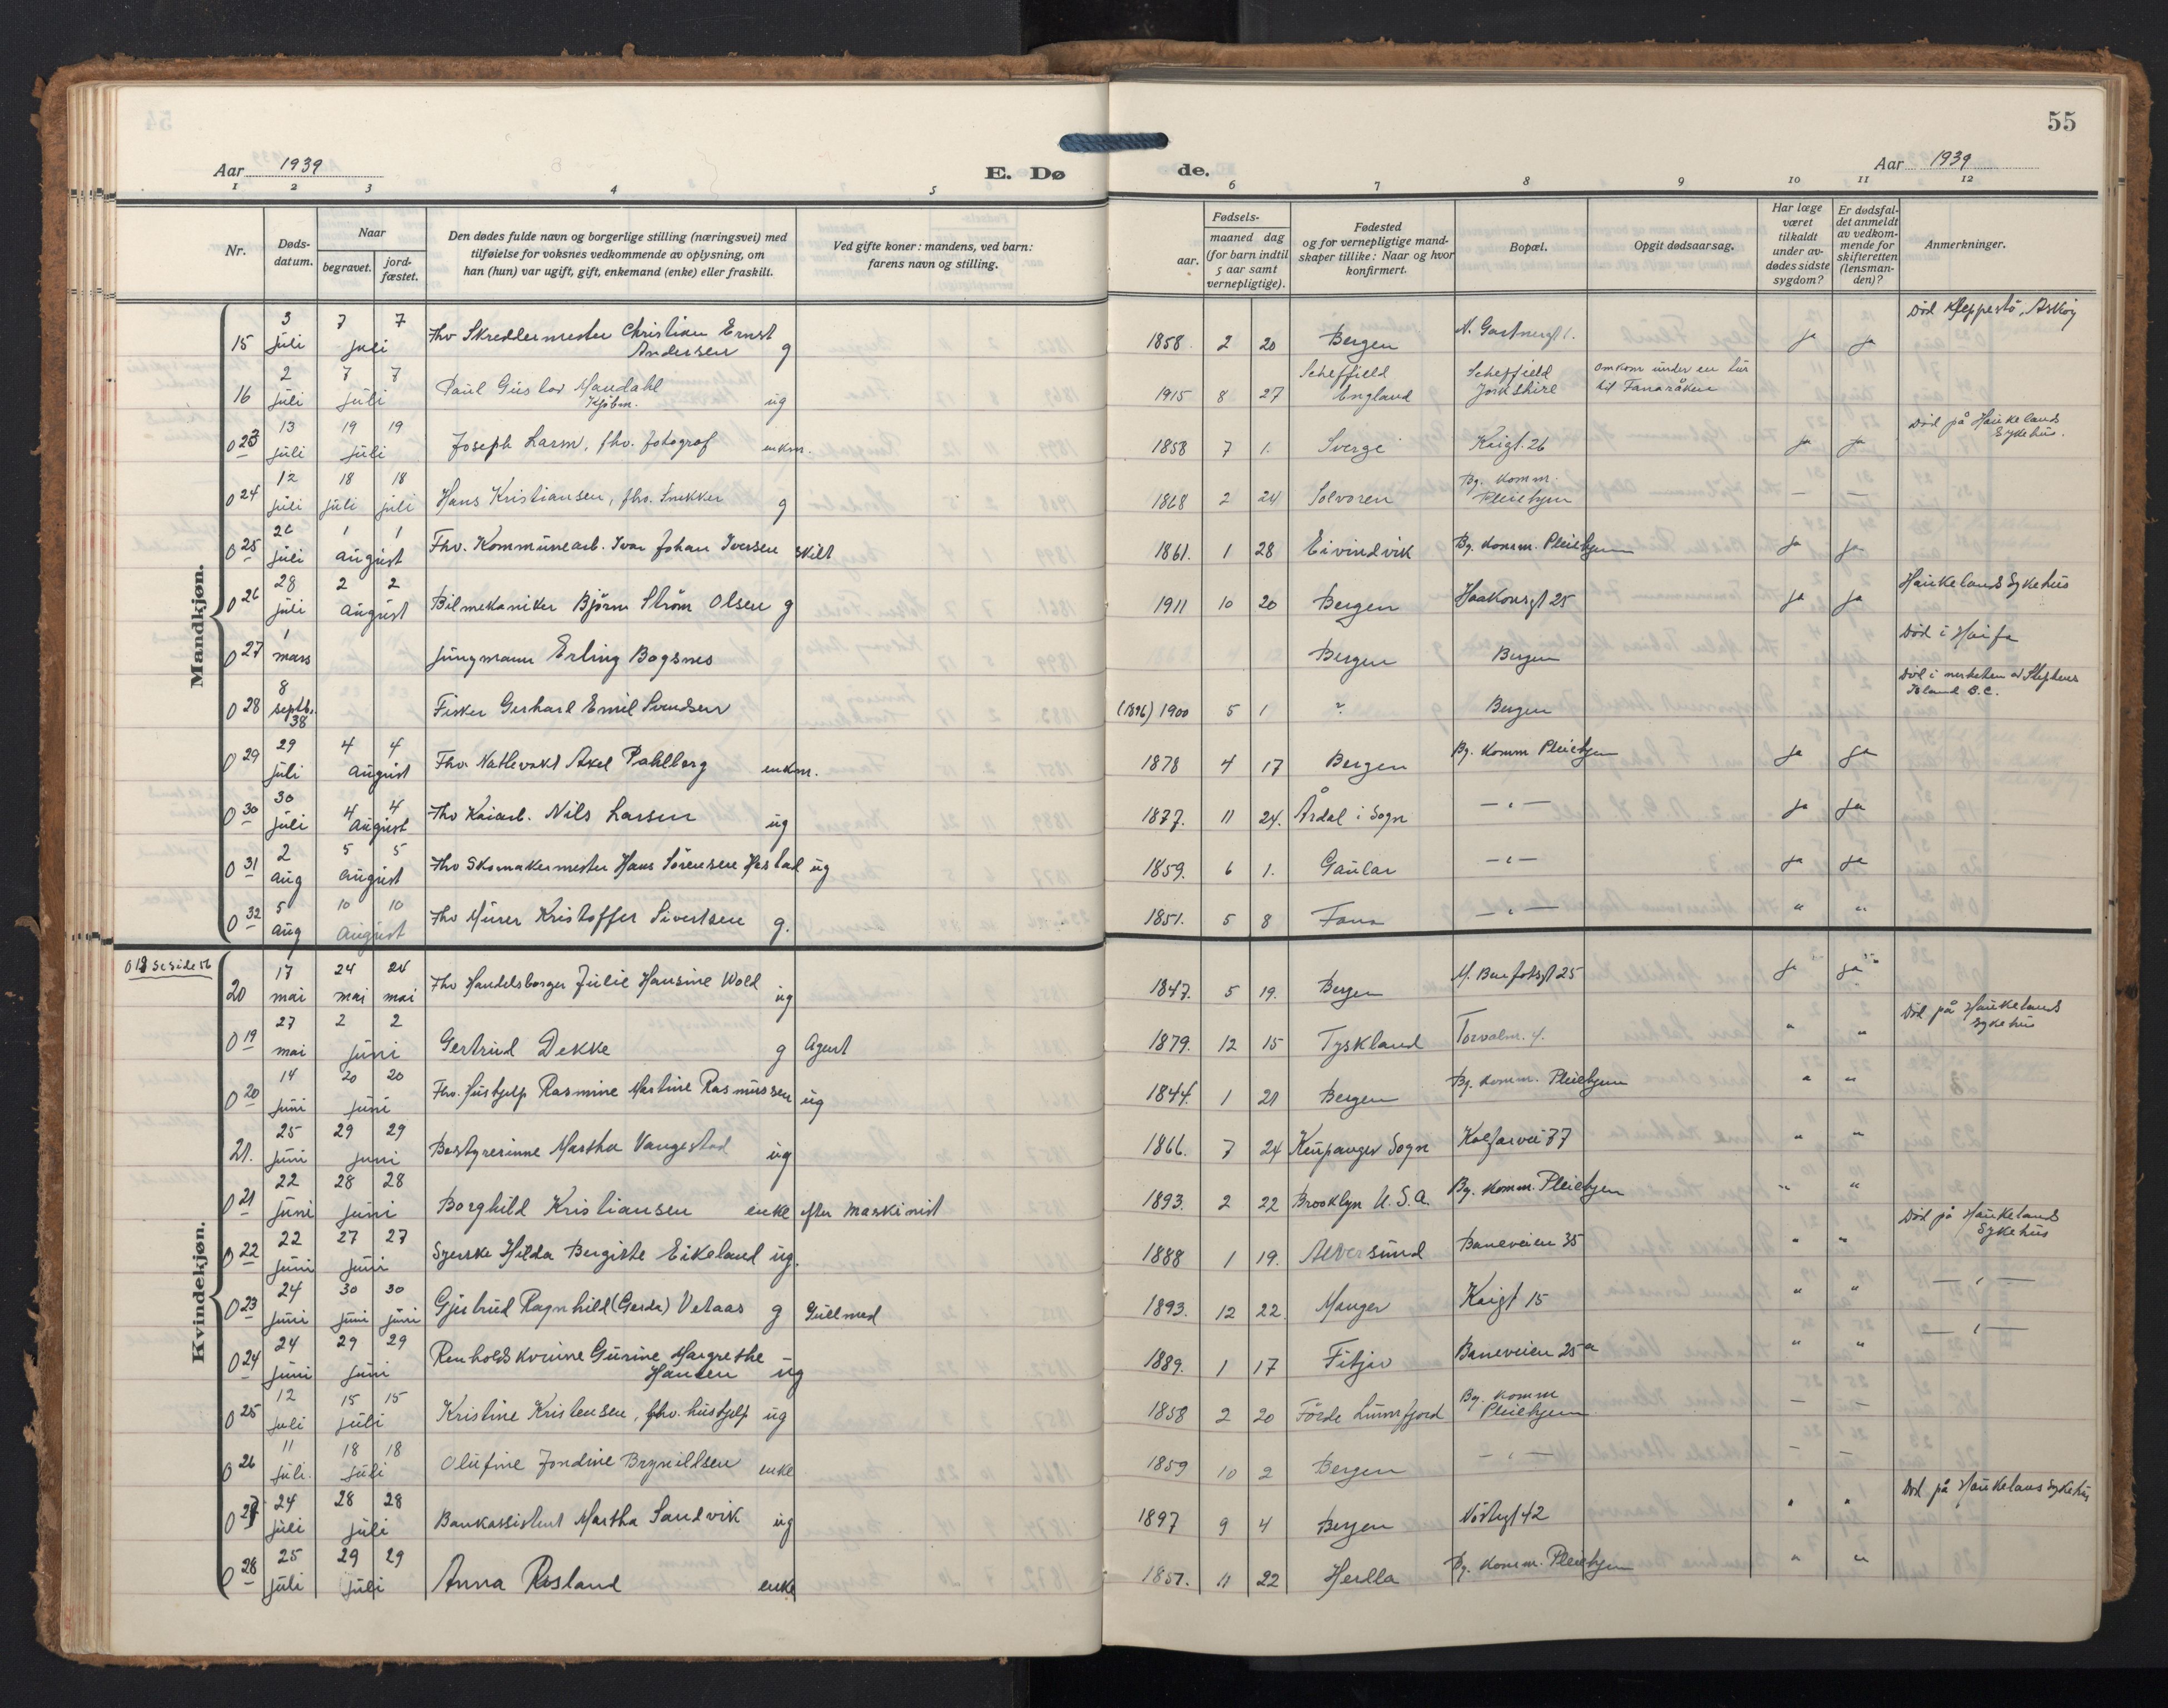 54
55
Aar 1939
E. Dø
de.
Aar 1939
1 2 3 4 5 6 7 8 9 10 11 12
Nr.
Døds-
datum.
Naar
begravet.
jord-
fæstet.
Den dødes fulde navn og borgerlige stilling (næringsvei) med
tilføielse for voksnes vedkommende av oplysning, om
han (hun) var ugift, gift, enkemand (enke) eller fraskilt.
Ved gifte koner: mandens, ved barn:
farens navn og stilling.
Fødsels-
aar.
maaned dag
(for barn indtil
5 aar samt
vernepligtige).
Fødested
og for vernepligtige mand-
skaper tillike: Naar og hvor
konfirmert.
Bopæl.
Opgit dødsaarsag.
Har læge
været
tilkaldt
under av-
dødes sidste
sygdom?
Er dødsfal-
det anmeldt
av vedkom-
mende for
skifteretten
(lensman-
den)?
Anmerkninger.
Mandkjøn.
15 3 juli 7 7 juli Fhv Skreddermester Christian Ernst Andersen g 1858. 2 20 Bergen N. Gartnergt 1. ja ja Död Kleppestö, Asköy
16 2 juli 7 7 juli Paul Gustav Mandahl Kjöbm. ug 1915 8 27 Scheffield England Scheffield Jorkshire omkom under en tur til Fanaråken
0 23 13 juli 19 19 juli Joseph Larm, fhv. fotograf enkm. 1858 7 1. Sverge Kaigt. 26 ja ja Död på Haukelands Sykehus.
0 24 12 juli 18 juli 18 juli Hans Kristiansen, fhv. Snekker g 1868 2 24 Solvoren Bg. Komm. Pleiehjem — —
0 25 26 juli 1 1 august Fhv. Kommunearb. Ivar Johan Iversen skilt 1861. 1 28 Eivindvik Bg. Komm. Pleiehjem ja ja
0 26 28 juli 2 2 august Bilmekaniker Björn Ström Olsen g 1911 10 20 Bergen Haakonsgt 25 ja ja Haukelands Sykehus
0 27 1 mars Jungmann Erling Bogsnes Bergen Bergen Död i Haifa
0 28 8 septb. 38 Fisker Gerhard Emil Svendsen (1896) 1900 5 1 ? Bergen Död i nerheten av Stephens Island B.C.
0 29 29 juli 4 4 august Fhv. Nattevakt Axel Pahlberg enkm. 1878 4 17 Bergen Bg. Komm Pleiehjem ja ja
0 30 30 juli 4 4 august Fhv Kaiarb. Nils Larsen ug 1877. 11 24. Årdal i Sogn — " — ja ja
0 31 2 aug 5 5 august Fhv Skomakermester Hans Sörensen Hestad ug 1859. 6 1. Gaular — " — ja ja
0 32 5 aug 10 10 august Fhv Murer Kristoffer Sivertsen g. 1851. 5 8 Fana — " — " "
Kvindekjøn.
0 18 se side 56
20 17 mai 24 mai 24 mai Fhv Handelsborger Julie Hansine Wold ug 1847. 5 19. Bergen M. Benfotsgt 25 ja ja
0 19 27 mai 2 2 juni Gertrud Dekke g Agent 1879. 12 15 Tyskland Torvalm. 4. " " Död på Haukelands Sykehus
0 20 14 juni 20 20 juni Fhv. Hushjelp Rasmine Martine Rasmussen ug 1844. 1 21 Bergen Bg. Komm. Pleiehjem " "
21. 25 juni 29 29 juni Bestyrerinne Martha Vangestad ug 1866. 7 24 Kaupanger Sogn Kalfarvei 77 " "
0 21 22 juni 28 28 juni Borghild Kristiansen enke efter Maskinist 1893. 2 22 Brooklyn U.S.A. Bg. Komm. Pleiehjem " "
0 22 22 juni 27 27 juni Syerske Hilda Bergitte Eikeland ug. 1888 1 19. Alversund Baneveien 35 " " Död på Haukelands Sykehus
0 23 24 juni 30 juni 30 juni Gjertrud Ragnhild (Gerda) Vetaas g Gullsmed 1893. 12 22. Manger Kaigt 15 " " — " —
0 24 24 juni 29 29 juni Renholdskvinne Gurine Margrethe Hansen ug 1889. 1 17 Fitjar Baneveien 25a " " — " —
0 25 12 juli 15 15 juli Kristine Kristensen, fhv. hushjelp ug 1858 2 20 Förde Sunnfjord Bg. Komm Pleiehjem — —
0 26 11 juli. 18 18 juli Olufine Jondine Brynildsen enke 1859 10 2 Bergen — " — — —
0 27 24 juli 28 28 juli Bankassistent Martha Sandvik ug 1897 9 4 Bergen Nöstegt 42 " " Död på Haukelans Sykehus
0 28 25 juli 29 29 juli Anna Rosland enke 1857. 11 22 Herdla Bg. Komm. Pleiehjem " "